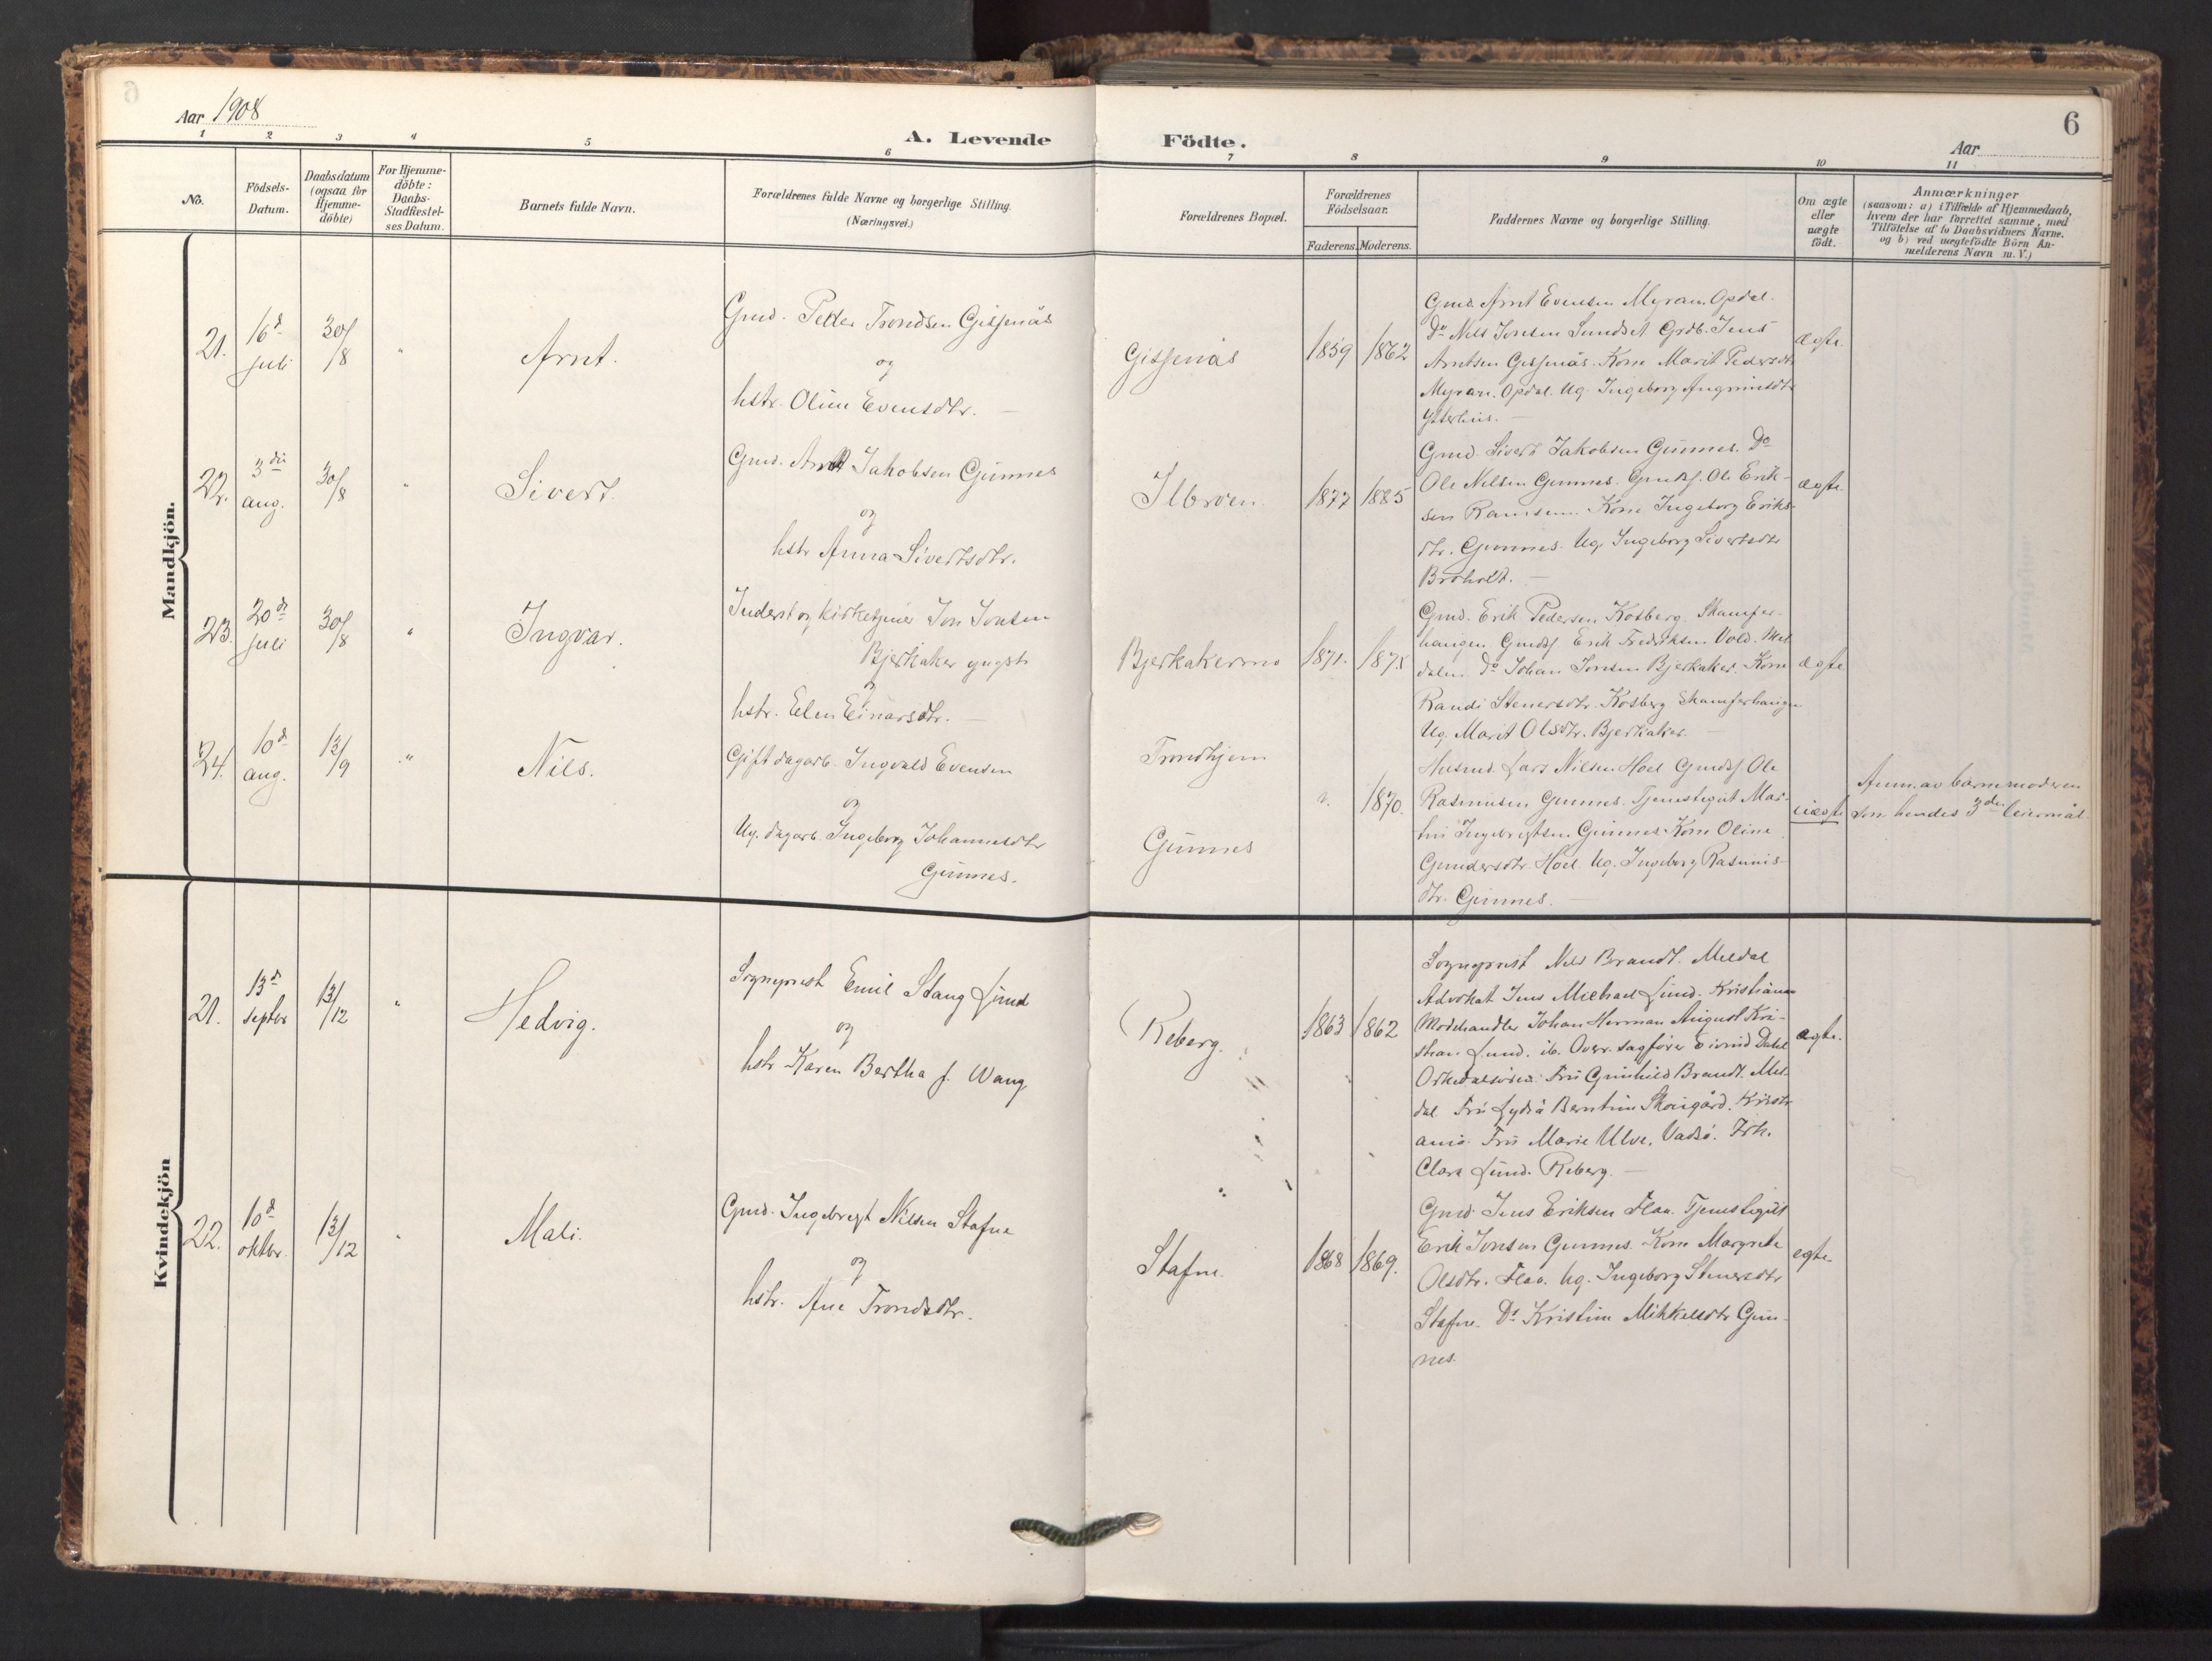 Aar 1908
6
A. Levende Födte.
Aar
1 2 3 4 5 6 7 8 9 10 11
No.
Födsels-
Datum.
Daabsdatum
(ogsaa for
Hjemme-
döbte)
For Hjemme-
döbte:
Daabs-
Stadfæstel-
ses Datum.
Barnets fulde Navn.
Forældrenes fulde Navne og borgerlige Stilling.
(Næringsvei.)
Forældrenes Bopæl.
Forældrenes
Födselsaar.
Faderens. Moderens.
Faddernes Navne og borgerlige Stilling.
Om ægte
eller
uægte
födt.
Anmærkninger
(saasom: a) i Tilfælde af Hjemmedaab,
hvem der har forrettet samme, med
Tilföielse af to Daabsvidners Navne.
og b) ved uægtefödte Börn An-
melderens Navn m. V.)
Mandkjön.
21.
16d
juli
30/8
"
Arnt.
Gmd. Peder Trondsen Gisnås
og
hstr. Oline Evensdtr. –
Gisnås
1859
1862
Gmd. Arnt Evensen Myran. Opdal.
Do Nils Jonsen Sundset. Grdb. Jens
Arntsen Gisnås. Kone Marit Pedersdtr
Myran. Opdal. Ug. Ingeborg Angrimsdtr
Ytterhus. –
ægte
22.
3die
aug.
30/8
"
Sivert.
Gmd. Arnt Jakobsen Gunnes
og
hstr Anna Sivertsdtr.
Ilbroen.
1877
1885
Gmd. Sivert Jakobsen Gunnes. Do
Ole Nilsen Gunnes. Gmds. Ole Erik-
sen Ramsem. Kone Ingeborg Eriks-
dtr. Gunnes. Ug. Ingeborg Sivertsdtr
Broholt. –
ægte
23.
20de
juli
30/8
"
Ingvar.
Inderst og kirketjener Jon Jonsen
Bjerkaker yngste
og
hstr. Elen Einarsdtr. –
Bjerkakermo
1871.
1875
Gmd. Erik Pedersen Kosberg.
Gmds. Erik Fredriksen Vold. Mel-
dalen. Do Johan Jonsen Bjerkaker. Kone
Randi Stenersdtr. Kosberg
Ug. Marit Olsdtr. Bjerkaker. –
ægte
24.
10d
aug.
13/9
"
Nils.
Gift dagarb. Ingvald Evensen
og
Ug. dagarb. Ingeborg Johannesdtr
Gunnes.
Trondhjem
Gunnes
1870.
Husmd. Lars Nilsen Hoel Gmds. Ole
Rasmusen Gunnes. Tjenestegut Mar-
tin Ingebrigtsen Gunnes. Kone Oline
Gundersdtr. Hoel. Ug. Ingeborg Rasmus-
dtr. Gunnes. –
uægte
Anm. av barnemoderen
som hendes 3die leiermål.
Kvindekjön
21.
13d
septbr
13/12
"
Hedvig.
Sogneprest Emil Stang Lund
og
hstr Karen Bertha f. Wang
Reberg.
1863
1862
Sogneprest Nils Brandt. Meldal
Advokat Jens Michael Lund. Kristiania
Modehandler Johan Herman August Kri-
stian Lund. ib. Overr. sagfører Eivind Dahl
Orkedalsøren. Fru Gunhild Brandt. Mel-
dal. Fru Lydia Berntine Skougård. Kristi-
ania. Fru Marie Ulve, Vadsø. Frk.
Clara Lund. Reberg. –
ægte.
22.
10d
oktbr.
13/12
"
Mali.
Gmd. Ingebrigt Nilsen Stafne
og
hstr. Ane Trondsdtr.
Stafne.
1868
1869.
Gmd. Jens Eriksen Flaa. Tjenestegut
Erik Jonsen Gunnes. Kone Margrete
Olsdtr. Flaa. Ug. Ingeborg Stenersdtr
Stafne. Do Kristine Mikkelsdtr Gun-
nes.
egte.